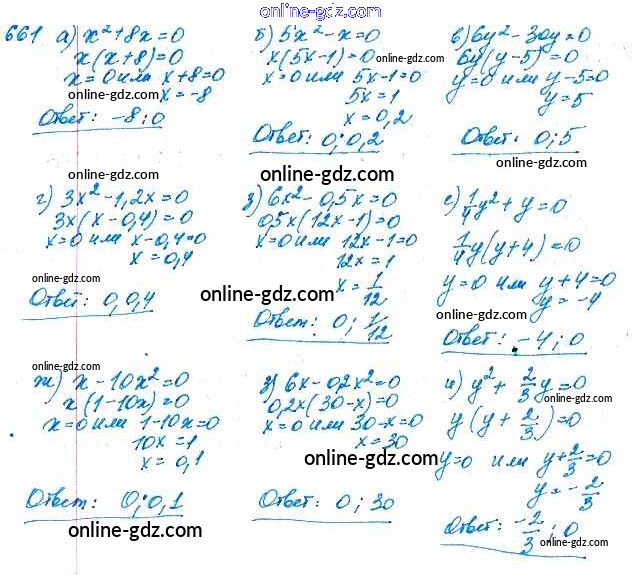 online-gdz.com
661 а) x²+8x=0
x(x+8)=0
x=0 или x+8=0
online-gdz.com
x=-8
Ответ: -8; 0
б) 5x²-x=0
x(5x-1)=0
online-gdz.com
x=0 или 5x-1=0
5x=1
x=0,2
Ответ: 0; 0,2
online-gdz.com
в) 6y²-30y=0
6y(y-5)=0
y=0 или y-5=0
online-gdz.com
y=5
Ответ: 0; 5
online-gdz.com
online-gdz.com
г) 3x²-1,2x=0
3x(x-0,4)=0
x=0 или x-0,4=0
x=0,4
online-gdz.com
Ответ: 0, 0,4
з) 6x²-0,5x=0
0,5x(12x-1)=0
x=0 или 12x-1=0
12x=1
x=1/12
online-gdz.com
Ответ: 0; 1/12
е) 1/4y²+y=0
online-gdz.com
1/4y(y+4)=0
y=0 или y+4=0
online-gdz.com
y=-4
Ответ: -4; 0
online-gdz.com
ж) x-10x²=0
x(1-10x)=0
x=0 или 1-10x=0
10x=1
x=0,1
Ответ: 0; 0,1
online-gdz.com
online-gdz.com
з) 6x-0,2x²=0
0,2x(30-x)=0
x=0 или 30-x=0
x=30
online-gdz.com
Ответ: 0; 30
online-gdz.com
и) y²+2/3y=0
y(y+2/3)=0
y=0 или y+2/3=0
y=-2/3
online-gdz.com
Ответ: -2/3; 0
online-gdz.com